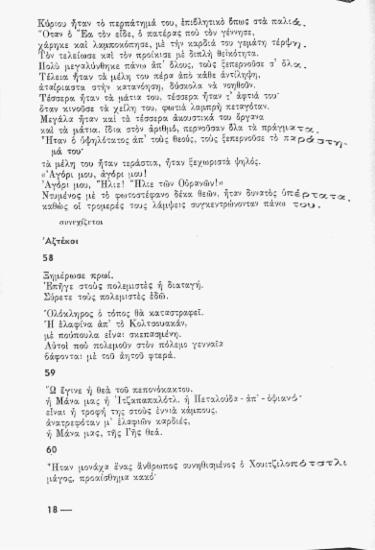 Κυρίου ἦταν τὸ περπάτημά του, ἐπιβλητικὸ ὅπως στὰ παλιά.
Ὅταν ὁ Ἔα τὸν εἶδε, ὁ πατέρας ποὺ τὸν γέννησε,
χάρηκε καὶ λαμποκόπησε, μὲ τὴν καρδιά του γεμάτη τέρψη.
Τὸν τελείωσε καὶ τὸν προίκισε μὲ διπλὴ θεϊκότητα.
Πολὺ μεγαλύνθηκε πάνω ἀπ' ὅλους, τοὺς ξεπερνοῦσε σ' ὅλα.
Τέλεια ἦταν τὰ μέλη του πέρα ἀπὸ κάθε ἀντίληψη,
ἀταίριαστα στὴν κατανόηση, δύσκολα νὰ νοηθοῦν.
Τέσσερα ἦταν τὰ μάτια του, τέσσερα ἦταν τ' ἀφτιά του·
ὅταν κινοῦσε τὰ χείλη του, φωτιὰ λαμπρὴ πεταγόταν.
Μεγάλα ἦταν καὶ τὰ τέσσερα ἀκουστικά του ὄργανα
καὶ τὰ μάτια, ἴδια στὸν ἀριθμό, περνοῦσαν ὅλα τὰ πράγματα.
Ἦταν ὁ ὑψηλότατος ἀπ' τοὺς θεούς, τοὺς ξεπερνοῦσε τὸ παράστη-
μά του·
τὰ μέλη του ἦταν τεράστια, ἦταν ξεχωριστὰ ψηλός.
«Ἀγόρι μου, ἀγόρι μου!
Ἀγόρι μου, Ἥλιε! Ἥλιε τῶν Οὐρανῶν!»
Ντυμένος μὲ τὸ φωτοστέφανο δέκα θεῶν, ἦταν δυνατὸς ὑπέρτατα,
καθὼς οἱ τρομερές τους λάμψεις συγκεντρώνονταν πάνω του.
συνεχίζεται
Ἀζτέκοι
58
Ξημέρωσε πρωί.
Ἐπῆγε στοὺς πολεμιστὲς ἡ διαταγή.
Σύρετε τοὺς πολεμιστὲς ἐδῶ.
Ὁλόκληρος ὁ τόπος θὰ καταστραφεῖ.
Ἡ ἐλαφίνα ἀπ' τὸ Κολτσουακάν,
μὲ πούπουλα εἶναι σκεπασμένη.
Αὐτοὶ ποὺ πολεμοῦν στὸν πόλεμο γενναῖα
βάφονται μὲ τοῦ ἀητοῦ φτερά.
59
Ὢ ἔγινε ἡ θεὰ τοῦ πεπονόκακτου.
ἡ Μάνα μας ἡ Ἰτζαπαπαλότλ. ἡ Πεταλούδα - ἀπ' - ὀψιανό·
εἶναι ἡ τροφή της στοὺς ἐννιὰ κάμπους,
ἀνατρεφόταν μ' ἐλαφιῶν καρδιές,
ἡ Μάνα μας, τῆς Γῆς θεά.
60
Ἦταν μονάχα ἕνας ἄνθρωπος συνηθισμένος ὁ Χουιτζιλοπότστλι
μάγος, προαίσθημα κακό·
18 —